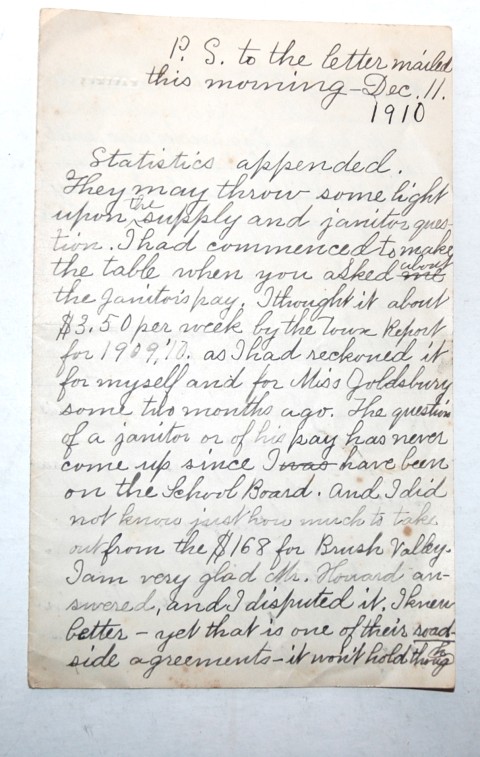 P. S. to the letter mailed
this morning - Dec. 11.
1910
Statistics appended.
They may throw some light
upon the supply and janitor ques-
tion. I had commenced to make
the table when you asked me about
the janitor's pay. I thought it about
$3.50 per week by the Town Report
for 1909,'10. as I had reckoned it
for myself and for Miss Goldsbury
some two months ago. The question
of a janitor or of his pay has never
come up since I was have been
on the School Board. And I did
not know just how much to take
out from the $168 for Brush Valley.
I am very glad Mr. Howard an-
swered, and I disputed it. I knew
better - yet that is one of their road-
side agreements - it won't hold though